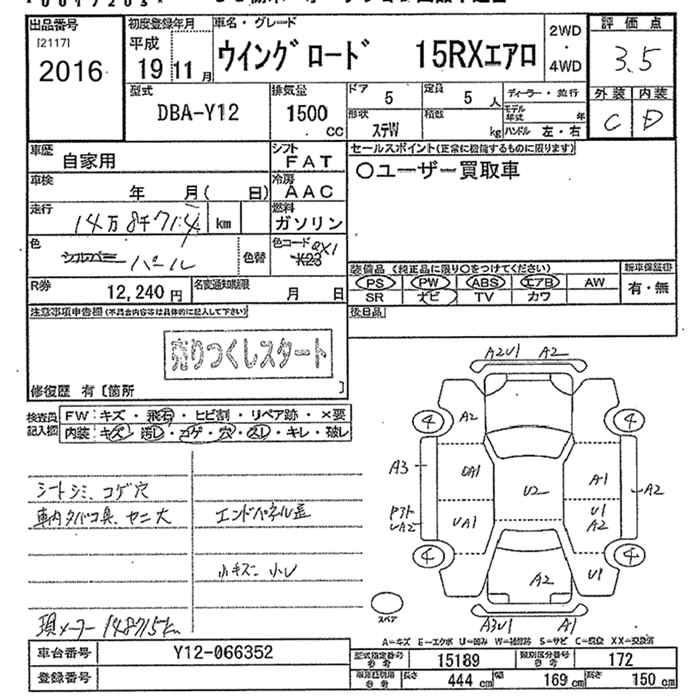 出品番号
[2117]
2016
初度登録年月
平成
19 11 月
車名・グレード
ウイングロード 15RXエアロ
2WD
・
4WD
評価点
3.5
外装 内装
C D
型式
DBA-Y12
排気量
1500
CC
ドア
5
定員
5 人
形状
ステW
積数
kg
ディーラー・並行
モデル
年式 年
ハンドル 左・右
車歴
自家用
シフト
FAT
車検
年 月( 日)
冷房
AAC
走行
km
燃料
ガソリン
色
シルバー パール
色替
色コード
K23 QX1
R券
12,240 円
名変通知期限
月 日
セールスポイント(正常に機能するものに限ります)
○ユーザー買取車
装備品 (純正品に限り○をつけてください)
新車保証書
PS PW ABS エアB AW
有・無
SR ナビ TV カワ
後日品
注意事項申告欄(不具合内容等は具体的に記入して下さい)
売りつくしスタート
修復歴 有[箇所 ]
検査員
記入欄
FW: キズ・飛石・ヒビ割・リペア跡・×要
内装: キズ・汚レ・コゲ・穴・スレ・キレ・破レ
シートシミ、コゲ穴
車内タバコ臭、ヤニ大
エンドパネル歪
小キズ 小凹
現メーター 148715km
A2U1 A2
4 4
A2
A3
UA1
A1
A2
U2
UA2
UA1
U1
A2
4 4
A2
U1
スペア
A3U1 A1
A=キズ E=エクボ U=凹み W=補修跡 S=サビ C=腐食 XX=交換済
車台番号
Y12-066352
登録番号
型式指定番号
参考
15189
類別区分番号
参考
172
参考
長さ
444 cm
幅
169 cm
高さ
150 cm